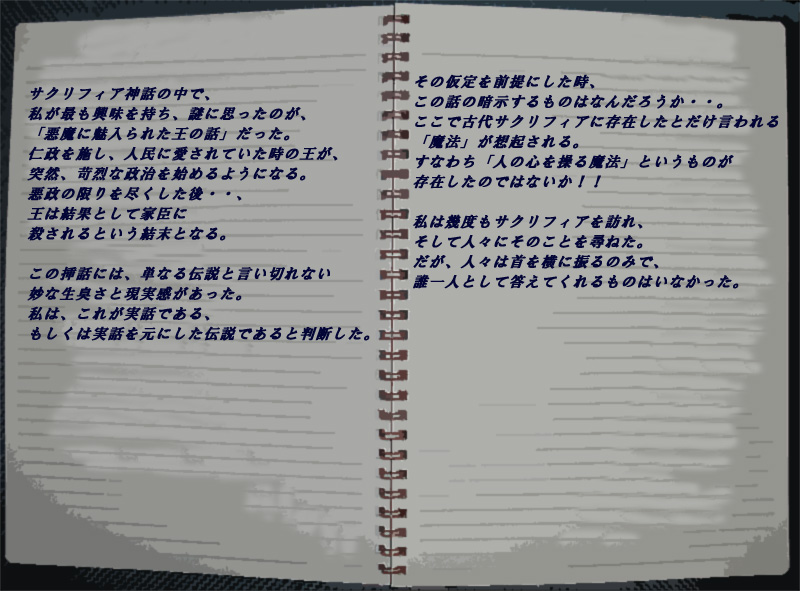 サクリフィア神話の中で、
私が最も興味を持ち、謎に思ったのが、
「悪魔に魅入られた王の話」だった。
仁政を施し、人民に愛されていた時の王が、
突然、苛烈な政治を始めるようになる。
悪政の限りを尽くした後・・、
王は結果として家臣に
殺されるという結末となる。
この挿話には、単なる伝説と言い切れない
妙な生臭さと現実感があった。
私は、これが実話である、
もしくは実話を元にした伝説であると判断した。
その仮定を前提にした時、
この話の暗示するものはなんだろうか・・。
ここで古代サクリフィアに存在したとだけ言われる
「魔法」が想起される。
すなわち「人の心を操る魔法」というものが
存在したのではないか！！
私は幾度もサクリフィアを訪れ、
そして人々にそのことを尋ねた。
だが、人々は首を横に振るのみで、
誰一人として答えてくれるものはいなかった。